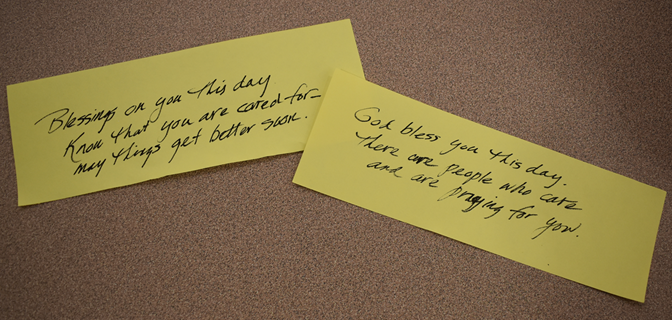 Blessings on you this day
Know that you are cared for–
may things get better soon.
God bless you this day.
There are people who care
and are praying for you.